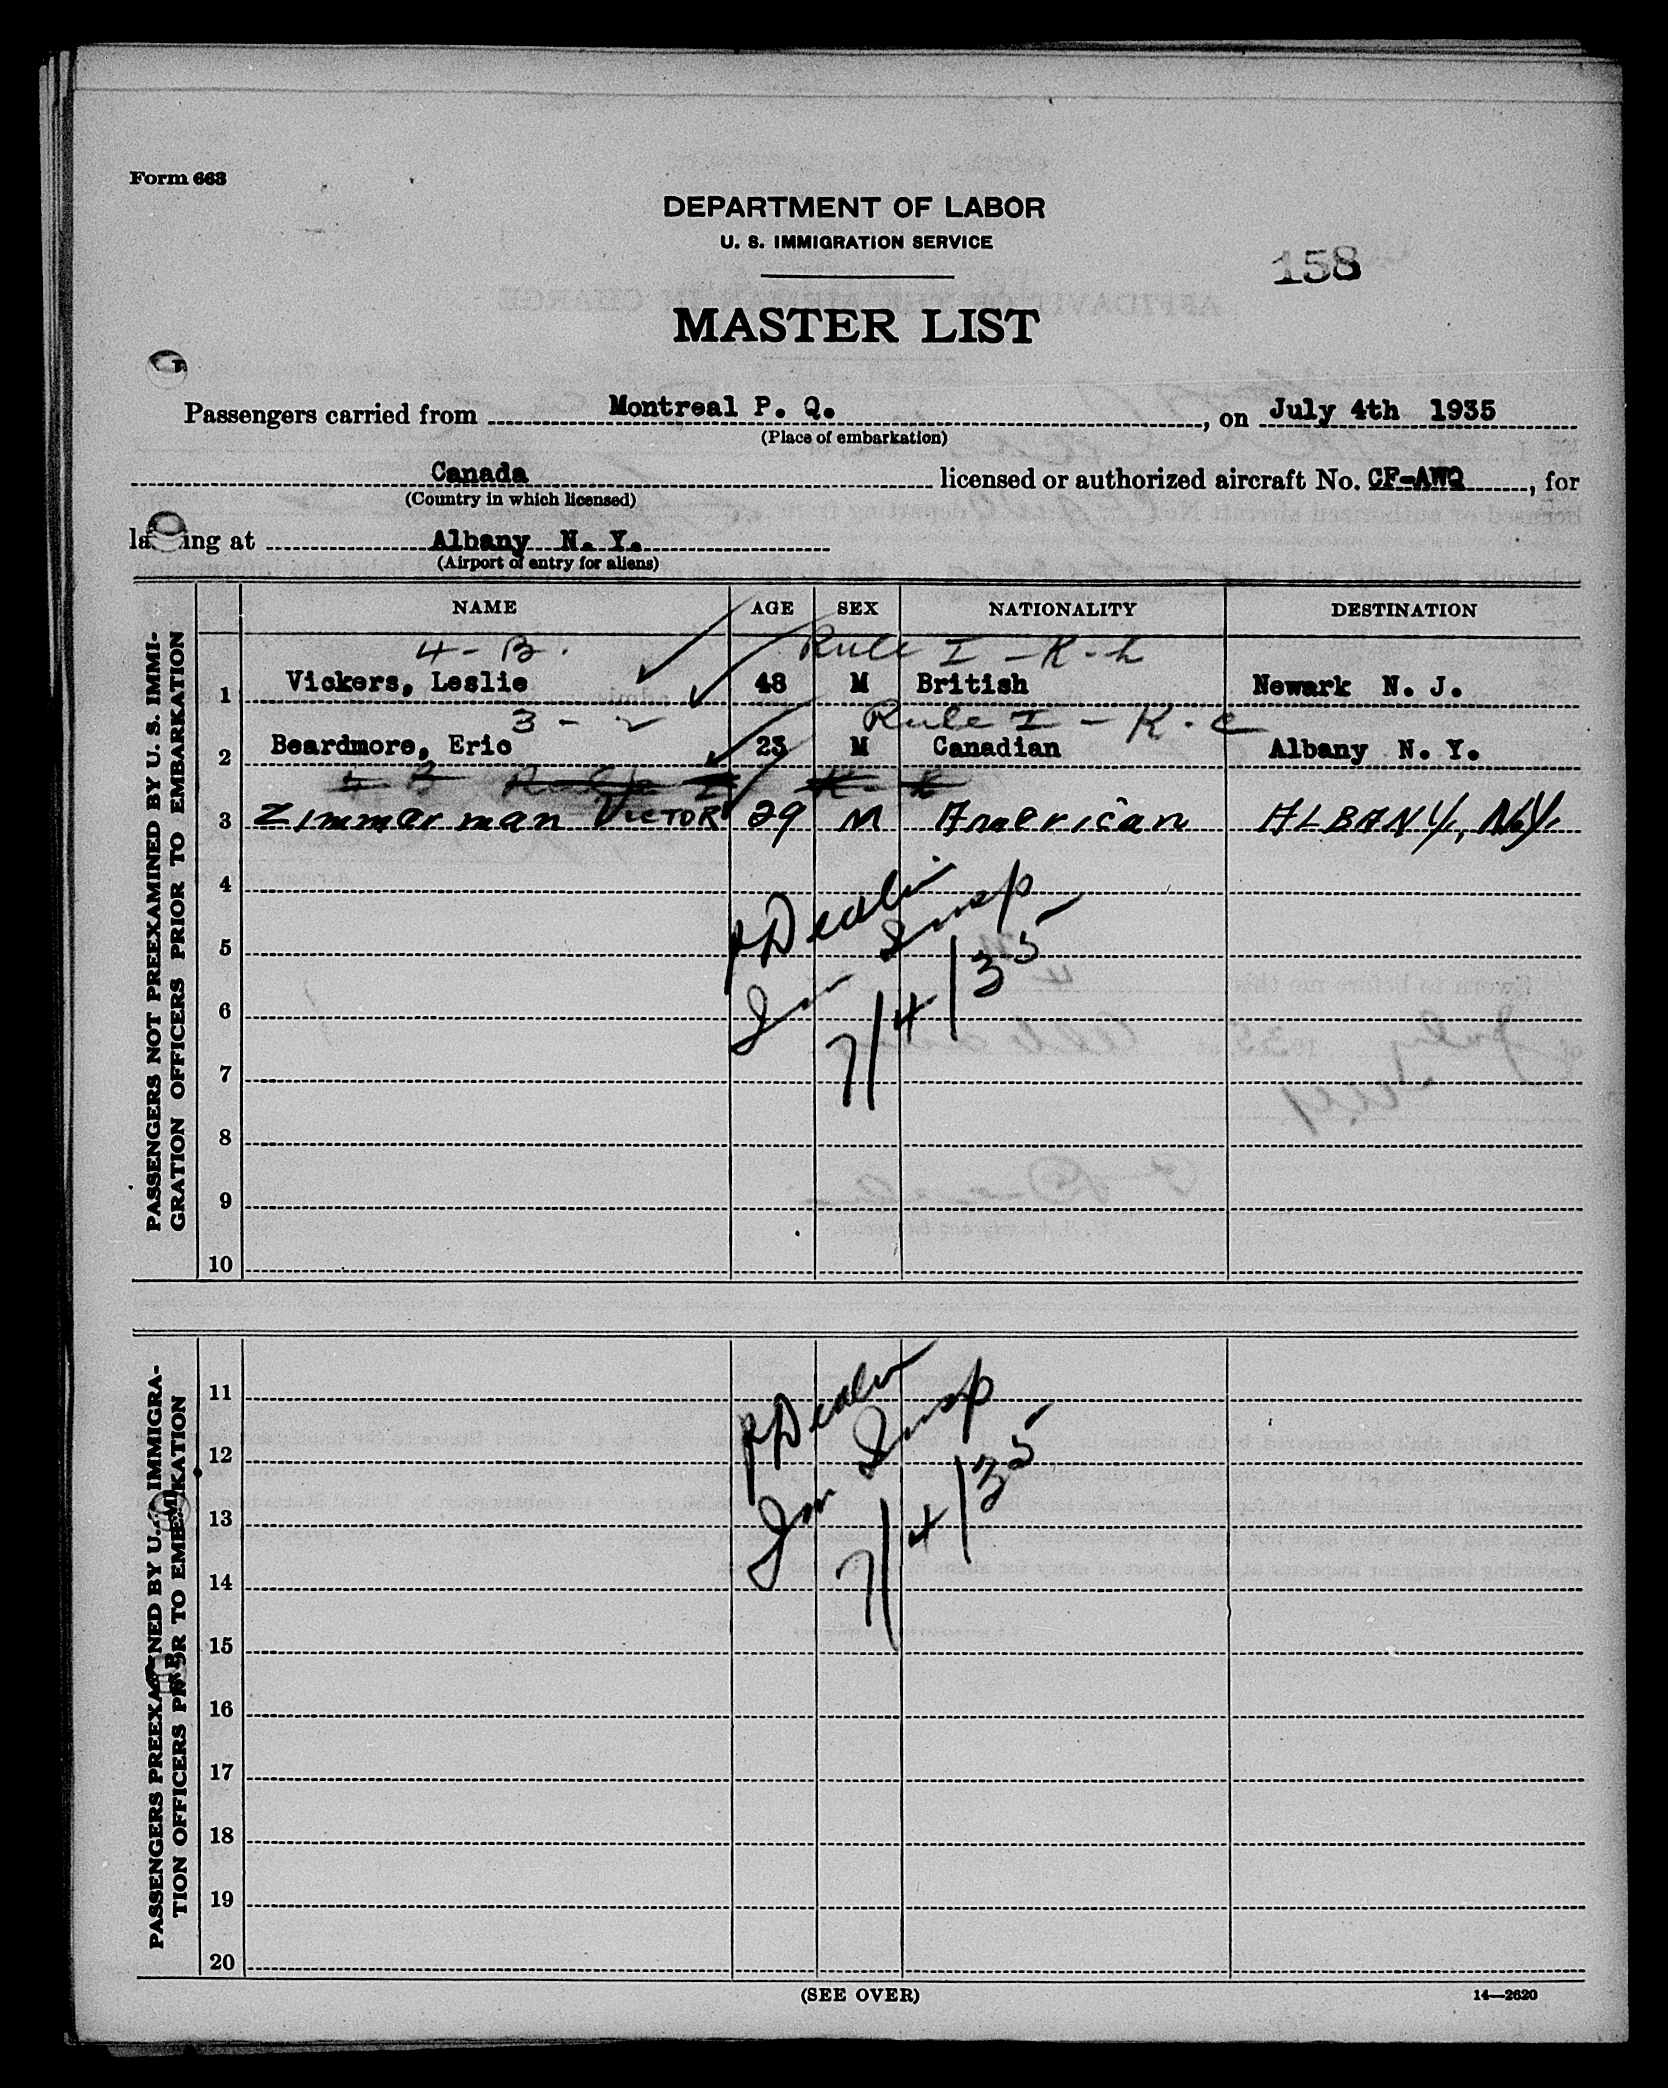 Form 663
DEPARTMENT OF LABOR
U. S. IMMIGRATION SERVICE
158
MASTER LIST
Passengers carried from Montreal P. Q., on July 4th 1935
(Place of embarkation)
Canada licensed or authorized aircraft No. CF-AWQ, for
(Country in which licensed)
la ing at Albany N. Y.
(Airport of entry for aliens)
NAME AGE SEX NATIONALITY DESTINATION
PASSENGERS NOT PREEXAMINED BY U. S. IMMI-
GRATION OFFICERS PRIOR TO EMBARKATION
4-B. Rule I - K-L
1 Vickers, Leslie 48 M British Newark N. J.
3-2 Rule I - K-C
2 Beardmore, Eric 23 M Canadian Albany N. Y.
3 Zimmarman VICTOR 29 M American ALBANY, N.Y.
4
5
Insp
6
Im
7/4/35
7
8
9
10
PASSENGERS PREEXA NED BY U. IMMIGRA-
TION OFFICERS PR OR TO EMB KATION
11
12
Insp
13
Im
7/4/35
14
15
16
17
18
19
20
(SEE OVER)
14—2620